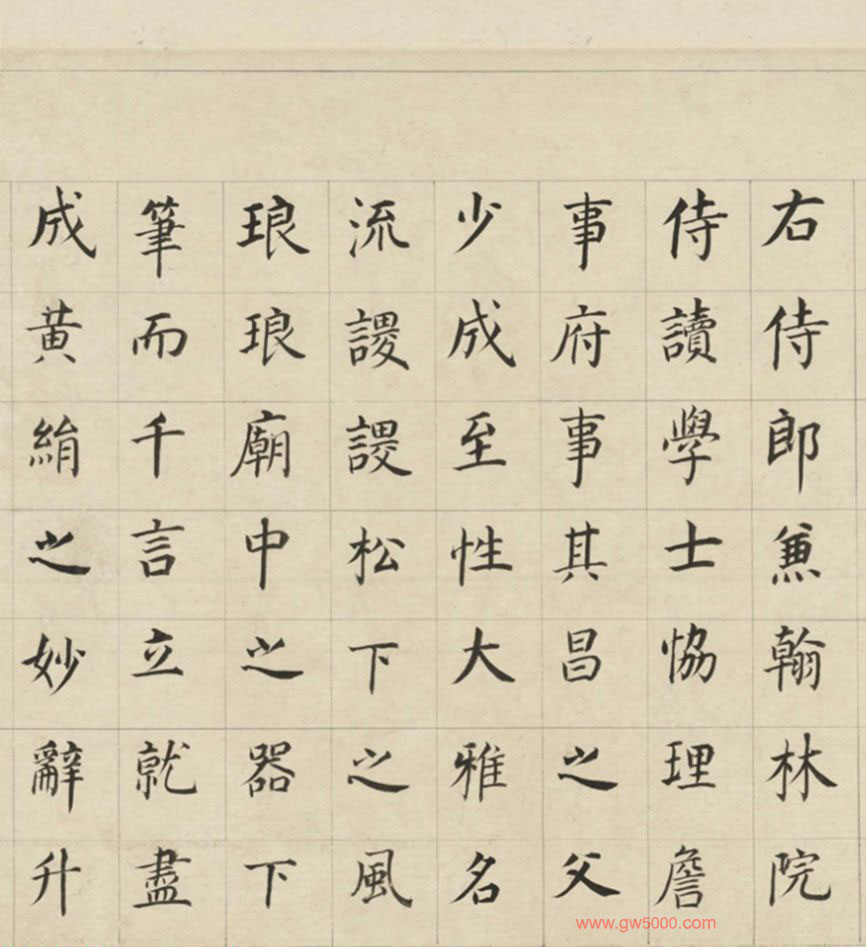 右侍郎兼翰林院
侍讀學士恊理詹
事府事其昌之父
少成至性大雅名
流謖謖松下之風
琅琅廟中之器下
筆而千言立就盡
成黃絹之妙辭升
www.gw5000.com